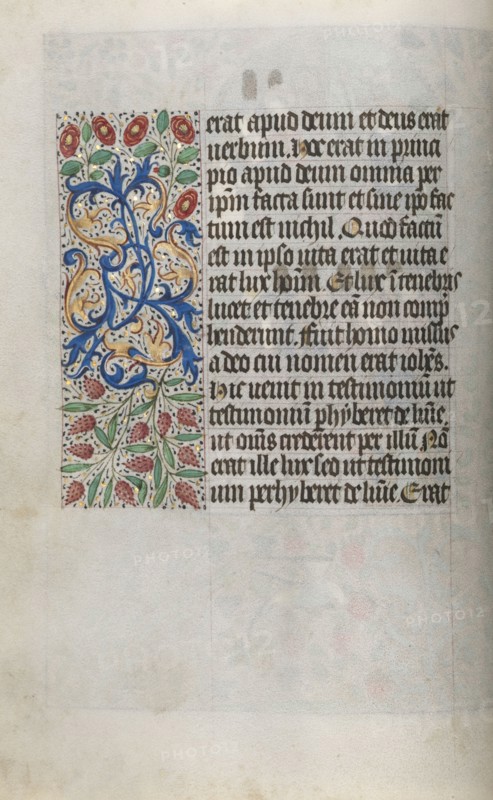 erat apud deum et deus erat
uerbum. Hoc erat in princi
pio apud deum omnia per
ip̄m facta sunt et sine ip̄o fac
tum est nichil. Quod factū
est in ipso uita erat et uita e
rat lux hoīm. Et lux ī tenebris
lucet et tenebre eā non comp
henderunt. Fuit homo missus
a deo cui nomen erat ioh̄es.
Hic uenit in testimoniū ut
testimoniū phyberet de lūīe.
ut oīns crederent per illū. Nō
erat ille lux sed ut testimoni
um perhyberet de lūīe. Erat
PHOTO12
PHOTO12
PHOTO12
PHOTO12
PHOTO12